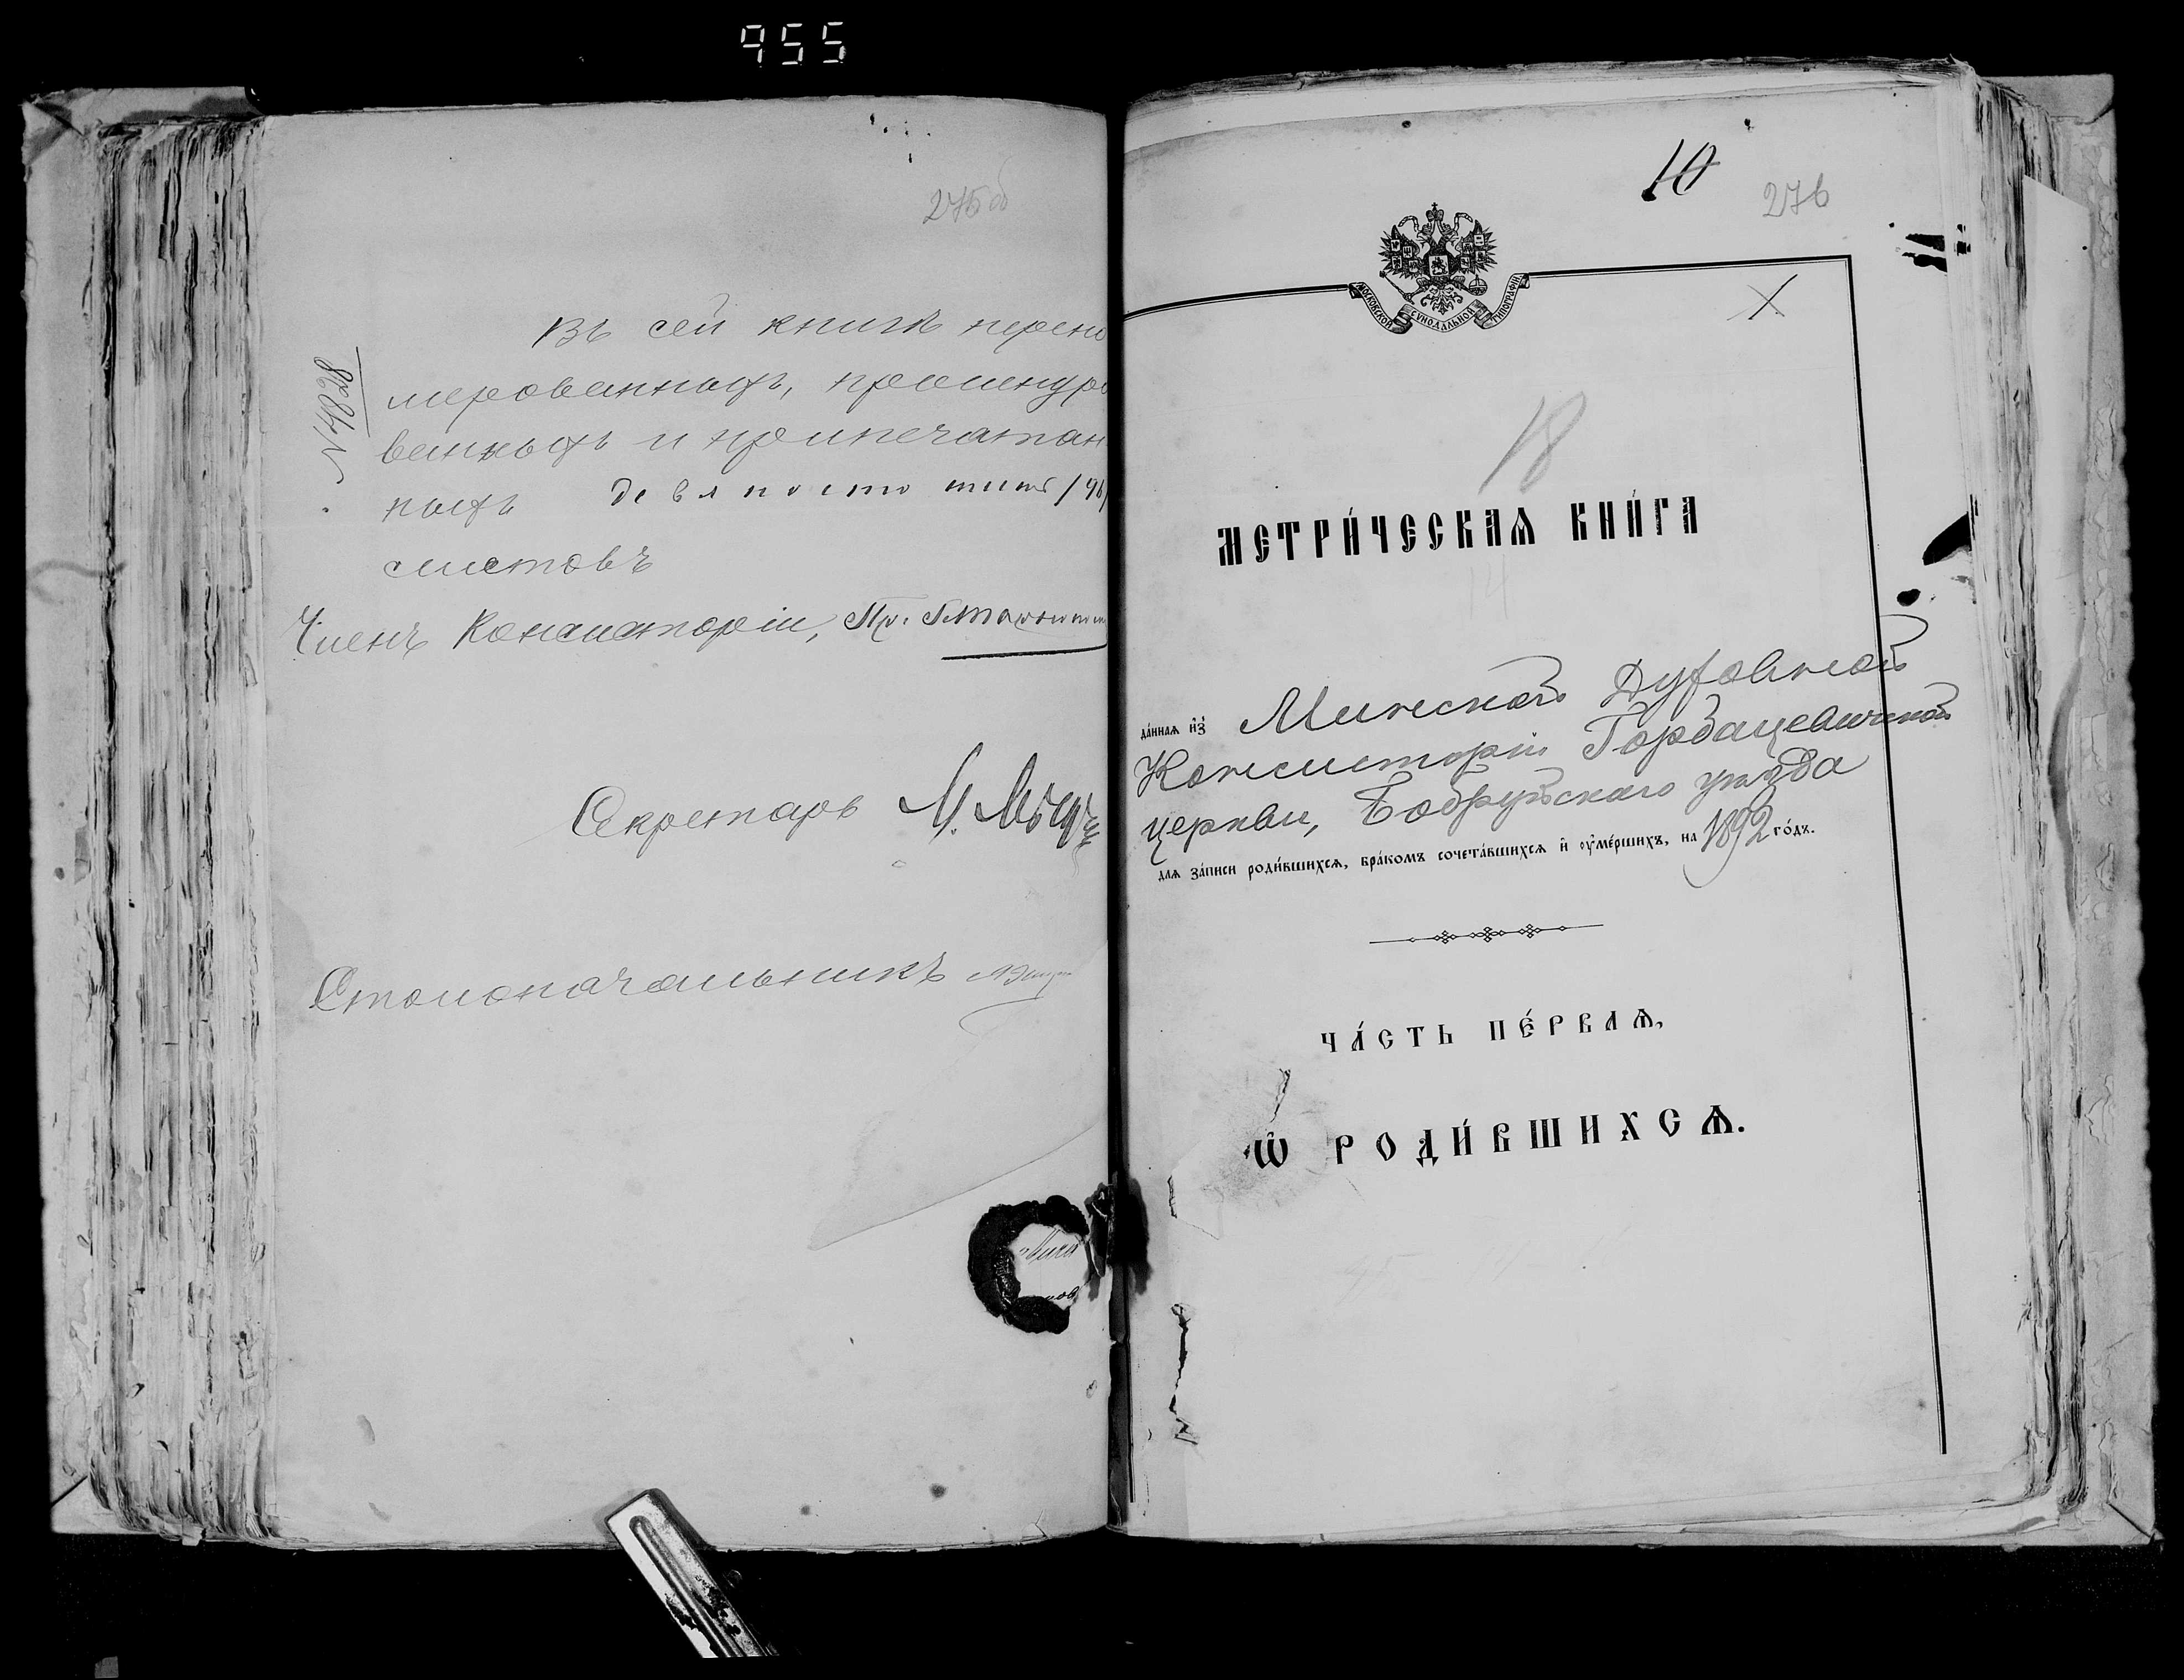 955
275об
Въ сей книгѣ перено
мерованныхъ, прошнуро
ванныхъ и припечатан
ныхъ девяносто шесть /96/
листовъ
№ 4828
Членъ Консисторіи, Пр.
Секретарь
Столоначальникъ
10
276
МОСКОВСКОЙ СѴНОДАЛЬНОЙ ТИПОГРАФІИ
X
18
МЕТРИ́ЧЕСКАѦ КНИ́ГА
14
да́ннаѧ и҆з̾ Минской Духовной
Консисторіи Горбацевичской
церкви, Бобруйскаго уѣзда
длѧ за́писи роди́вшихсѧ, бра́комъ сочета́вшихсѧ и҆ оу҆ме́ршихъ, на 1892 го́дъ.
ЧА́СТЬ ПЕ́РВАѦ,
Ѡ҆ РОДИ́ВШИХСѦ.